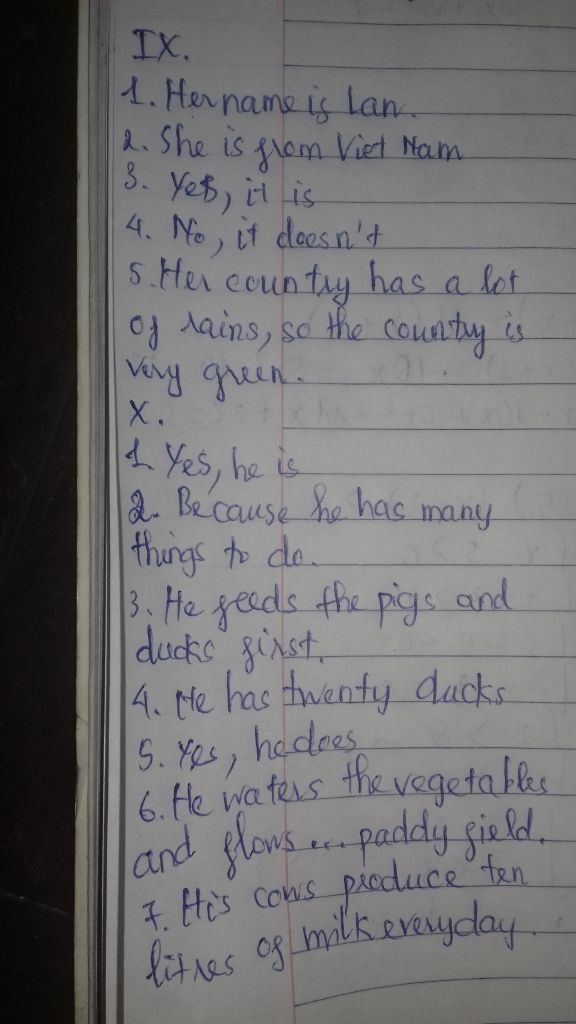 IX.
1. Her name is Lan.
2. She is from Viet Nam
3. Yes, it is
4. No, it doesn't
5. Her country has a lot
of rains, so the country is
very green.
X.
1 Yes, he is
2. Because he has many
things to do.
3. He feeds the pigs and
ducks first.
4. He has twenty ducks
5. Yes, he does
6. He waters the vegetables
and flows ... paddy field.
7. His cows produce ten
litres of milk everyday.